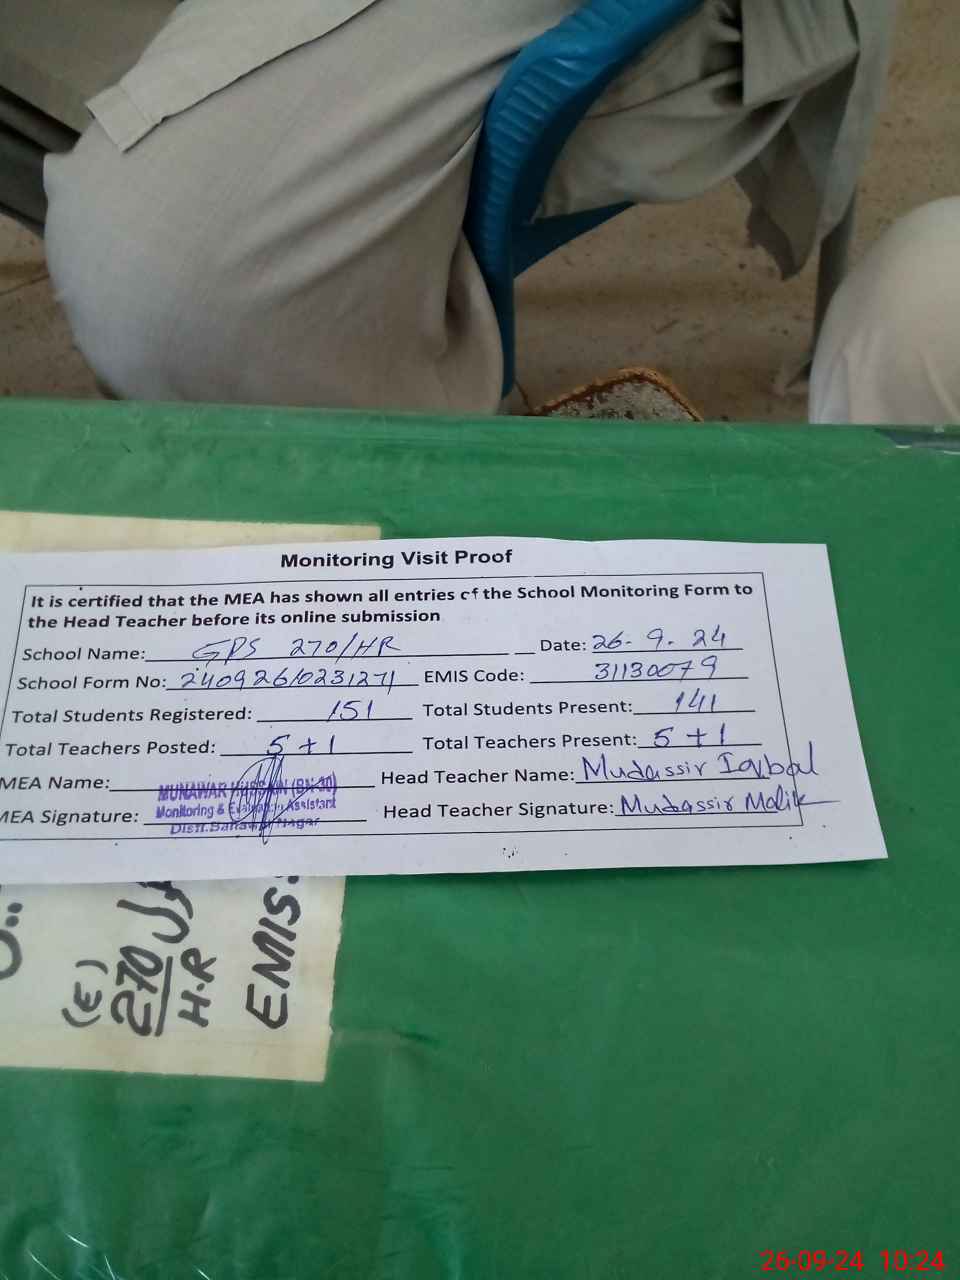 Monitoring Visit Proof
It is certified that the MEA has shown all entries of the School Monitoring Form to
the Head Teacher before its online submission
School Name: GPS 270/HR Date: 26-9-24
School Form No: 24092610231271 EMIS Code: 31130079
Total Students Registered: 151 Total Students Present: 141
Total Teachers Posted: 5+1 Total Teachers Present: 5+1
MEA Name: Head Teacher Name: Mudassir Iqbal
MUNAWAR HUSSAIN (BN-30)
Monitoring & Evaluation Assistant
MEA Signature: Head Teacher Signature: Mudassir Malik
Distt. Bahawalnagar
(E)
270
H-R
EMIS:
26-09-24 10:24